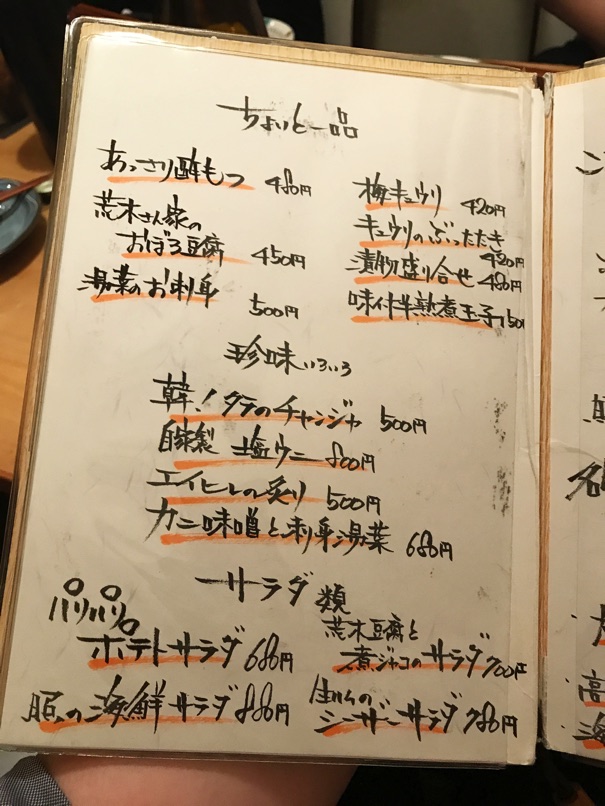 ちょいと一品
あっさり酢もつ 480円
荒木さん家の
おぼろ豆腐 450円
湯葉のお刺身 500円
梅キュウリ 420円
キュウリのぶったたき
420円
漬物盛り合せ 480円
味付半熟煮玉子 150
珍味いろいろ
韓!タラのチャンジャ 500円
自家製 塩ウニ 800円
エイヒレの炙り 500円
カニ味噌と刺身湯葉 680円
サラダ類
パリパリ
ポテトサラダ 680円
荒木豆腐と
煮ジャコのサラダ 700円
の海鮮サラダ 880円
シーザーサラダ 780円